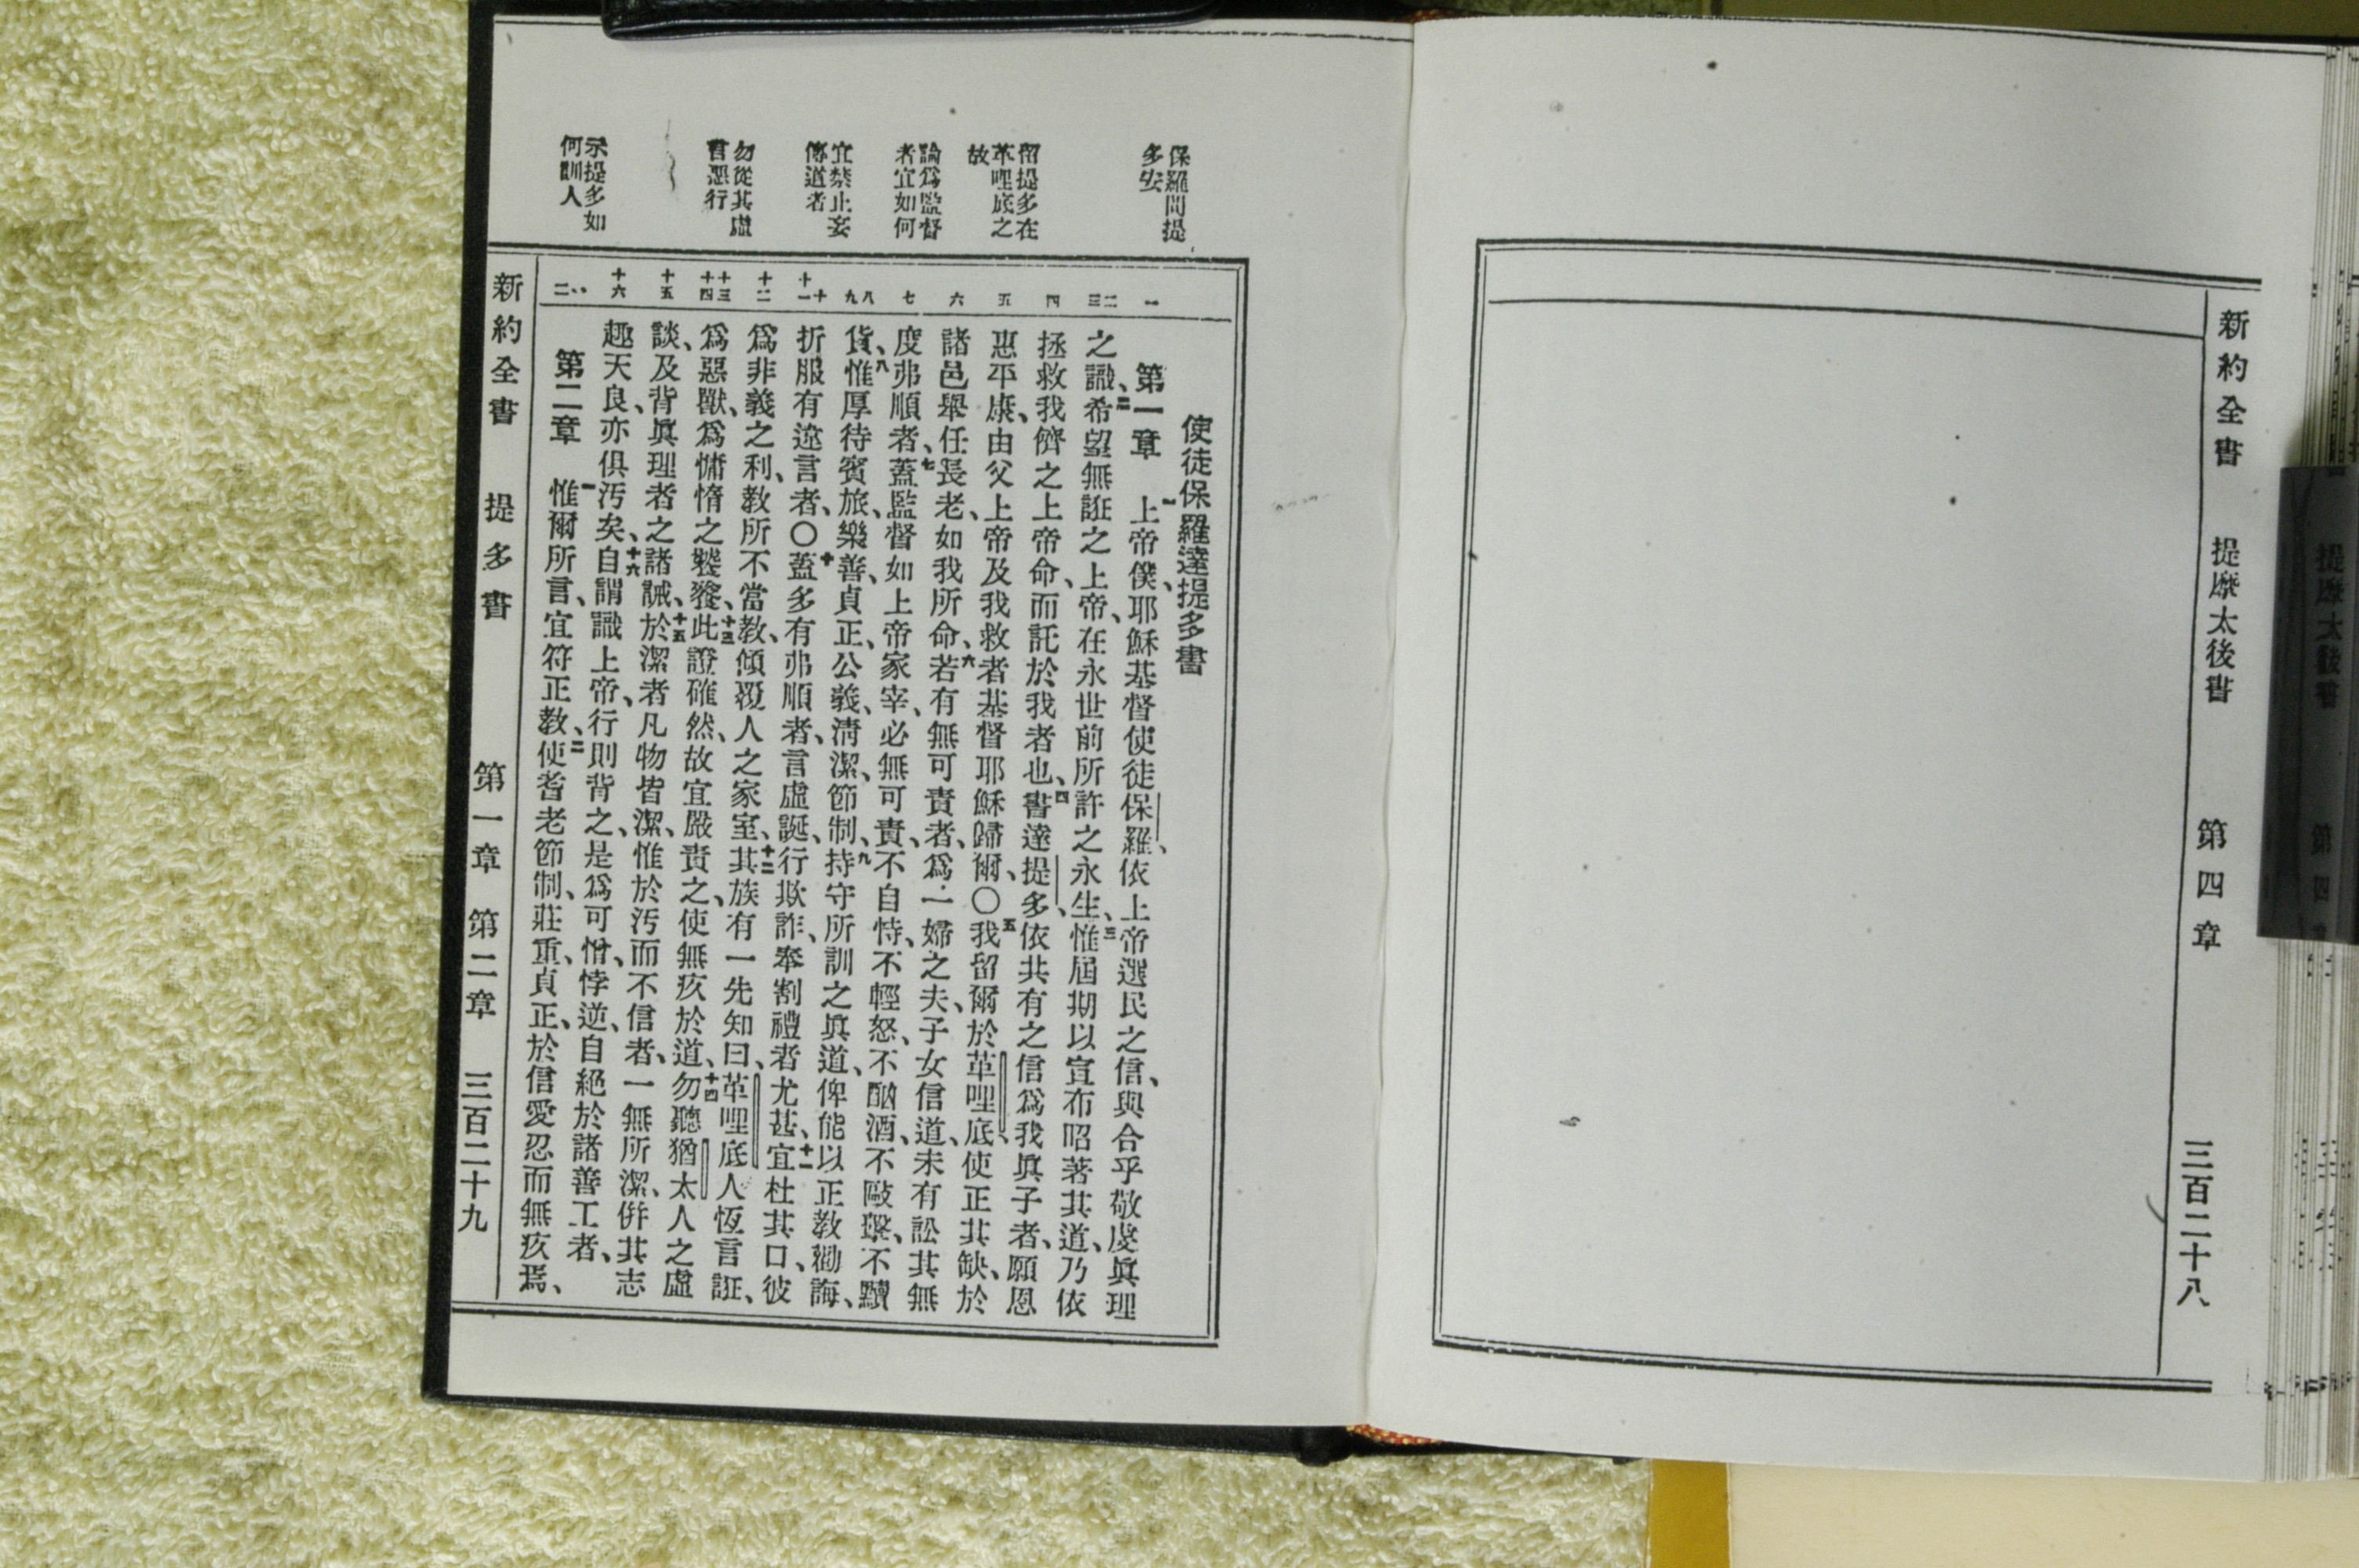 新約全書 提摩太後書 第四章 三百二十八
保羅問提
多安
留提多在
革哩底之
故
論爲監督
者宜如何
宜禁止妄
傳道者
勿從其虛
言惡行
示提多如
何訓人
一 二 三 四 五 六 七 八 九 十 十一 十二 十三 十四 十五 十六 一 二
使徒保羅達提多書
第一章 一上帝僕、耶穌基督使徒保羅、依上帝選民之信、與合乎敬虔眞理
之識、二希望無誑之上帝、在永世前所許之永生、三惟屆期以宣布昭著其道、乃依
拯救我儕之上帝命、而託於我者也、四書達提多、依共有之信爲我眞子者、願恩
惠平康、由父上帝及我救者基督耶穌歸爾、〇五我留爾於革哩底、使正其缺、於
諸邑舉任長老、如我所命、六若有無可責者、爲一婦之夫、子女信道、未有訟其無
度弗順者、七蓋監督如上帝家宰、必無可責、不自恃、不輕怒、不酗酒、不毆擊、不黷
貨、八惟厚待賓旅、樂善、貞正、公義、淸潔、節制、九持守所訓之眞道、俾能以正敎勸誨、
折服有逆言者、〇十蓋多有弗順者、言虛誕、行欺詐、奉割禮者尤甚、十一宜杜其口、彼
爲非義之利、敎所不當敎、傾覆人之家室、十二其族有一先知曰、革哩底人恆言誑、
爲惡獸、爲慵惰之饕餮、十三此證確然、故宜嚴責之、使無疚於道、十四勿聽猶太人之虛
談、及背眞理者之諸誡、十五於潔者凡物皆潔、惟於汚而不信者、一無所潔、倂其志
趣天良、亦俱汚矣、十六自謂識上帝、行則背之、是爲可憎、悖逆、自絕於諸善工者、
第二章 一惟爾所言、宜符正敎、二使耆老節制、莊重、貞正、於信愛忍而無疚焉、
新約全書 提多書 第一章 第二章 三百二十九